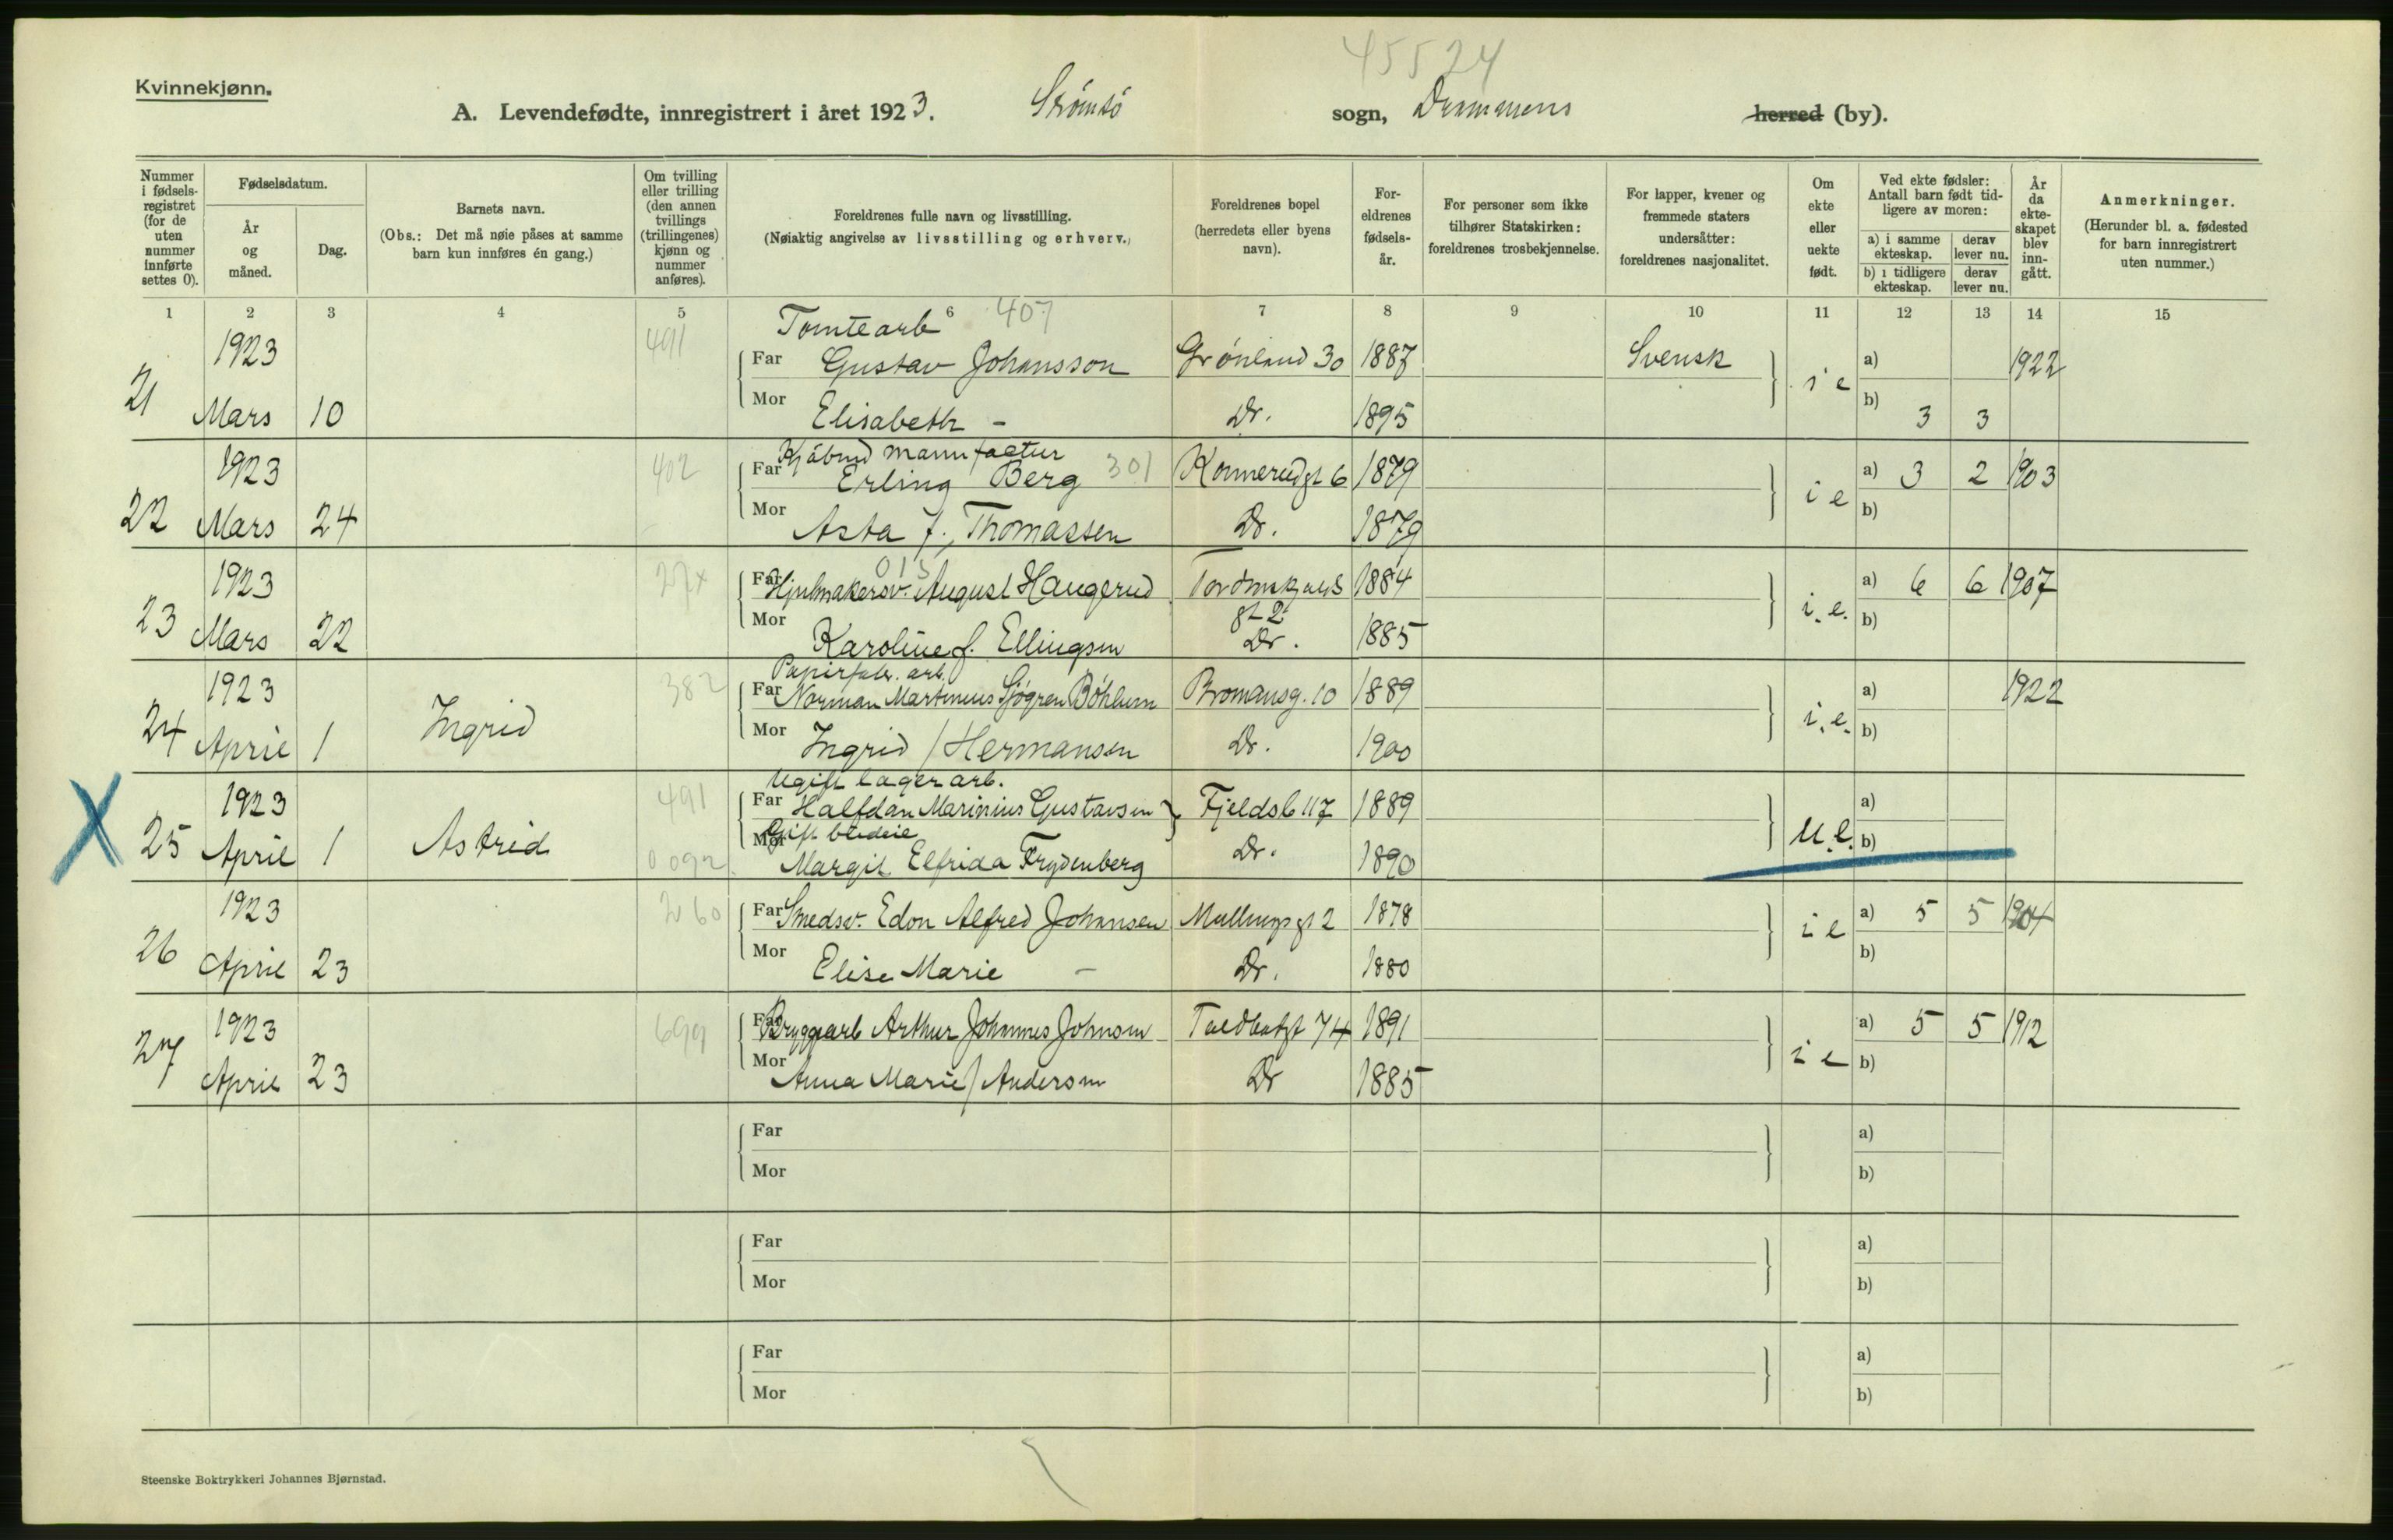 45524
Kvinnekjønn.
A. Levendefødte, innregistrert i året 1923. Strømsö sogn, Drammens herred (by).
Nummer i fødsels-registret (for de uten nummer innførte settes 0).
Fødselsdatum.
År og måned.
Dag.
Barnets navn.
(Obs.: Det må nøie påses at samme barn kun innføres én gang.)
Om tvilling eller trilling (den annen tvillings (trillingenes) kjønn og nummer anføres).
Foreldrenes fulle navn og livsstilling.
(Nøiaktig angivelse av livsstilling og erhverv.)
Foreldrenes bopel (herredets eller byens navn).
For-eldrenes fødsels-år.
For personer som ikke tilhører Statskirken: foreldrenes trosbekjennelse.
For lapper, kvener og fremmede staters undersåtter: foreldrenes nasjonalitet.
Om ekte eller uekte født.
Ved ekte fødsler: Antall barn født tid-ligere av moren:
a) i samme ekteskap. derav lever nu.
b) i tidligere ekteskap. derav lever nu.
År da ekte-skapet blev inn-gått.
Anmerkninger.
(Herunder bl. a. fødested for barn innregistrert uten nummer.)
1 2 3 4 5 6 7 8 9 10 11 12 13 14 15
Tomtearb 407
21 1923 Mars 10 491
Far Gustav Johansson Grönland 30 1887 Svensk i e a) 1922
Mor Elisabeth - Dr. 1895 b) 3 3
Kjøbmd manufactur
22 1923 Mars 24 402
Far Erling Berg 301 Konnerudgt 6 1879 i e a) 3 2 1903
Mor Asta f. Thomassen Dr. 1879 b)
23 1923 Mars 22
Far Hjulmakersv. August Haugerud 1884 i.e. a) 6 6 1907
Mor Karoline f. Ellingsen Dr. 1885 b)
Papirfabr. arb.
24 1923 April 1 Ingrid 382
Far Norman Martinius Sjögren Bromansg. 10 1889 i.e. a) 1922
Mor Ingrid / Hermansen Dr. 1900 b)
Ugift lagerarb.
X 25 1923 April 1 Astrid 491
Far Halfdan Marinius Gustavsen Fjeldsb 117 1889 u.e. a)
Gift
0092 Mor Margit Elfrida Frydenberg Dr. 1890 b)
26 1923 April 23 260
Far Smedsv. Edon Alfred Johansen 1878 i e a) 5 5 1904
Mor Elise Marie - Dr. 1880 b)
27 1923 April 23 699
Far Bryggearb Arthur Johannes Johnsen 1891 i e a) 5 5 1912
Mor Anna Marie / Andersen Dr 1885 b)
Far a)
Mor b)
Far a)
Mor b)
Far a)
Mor b)
Steenske Boktrykkeri Johannes Bjørnstad.